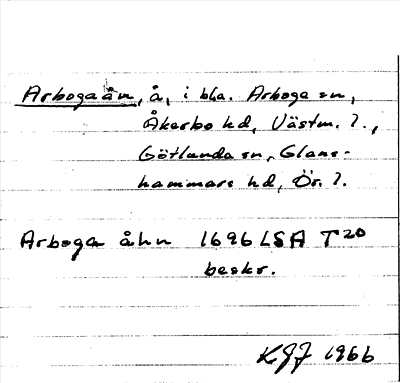 Arbogaån, å, i bl.a. Arboga sn,
Åkerbo hd, Västm. l.,
Götlunda sn, Glans-
hammars hd, Ör. l.
Arboga åhn 1696 LSA T20
beskr.
KGJ 1966